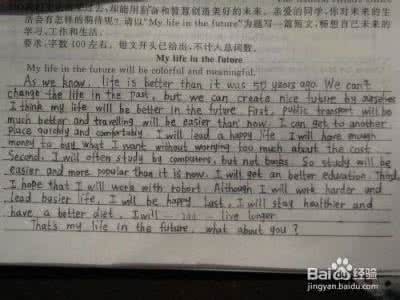 却能用勤奋和智慧创造美好的未来。亲爱的同学,你对未来的生
活会有怎样的憧憬呢?请以"My life in the future"为题写一篇短文,畅想自己未来的
学习、工作和生活。
要求:字数100左右。短文开头已给出,不计入总词数。
My life in the future
My life in the future will be colorful and meaningful.
As we know, life is better than it was 50 years ago. We can't
change the life in the past, but we can create nice future by ourselves
I think my life will be better in the future. First, public transport will be
much better and travelling will be easier than now. I can get to another
place quickly and comfortably. I will lead a happy life. I will have enough
money to buy what I want without worrying too much about the cost
Second, I will often study by computers, but not books. So study will be
easier and more popular than it is now. I will get an better education. Third,
I hope that I will work with robort. Although I will work harder and
lead busier life, I will be happy. Last, I will stay healthier and
have a better diet. I will live longer
That's my life in the future, what about you?
Baidu 经验
jingyan.baidu.com